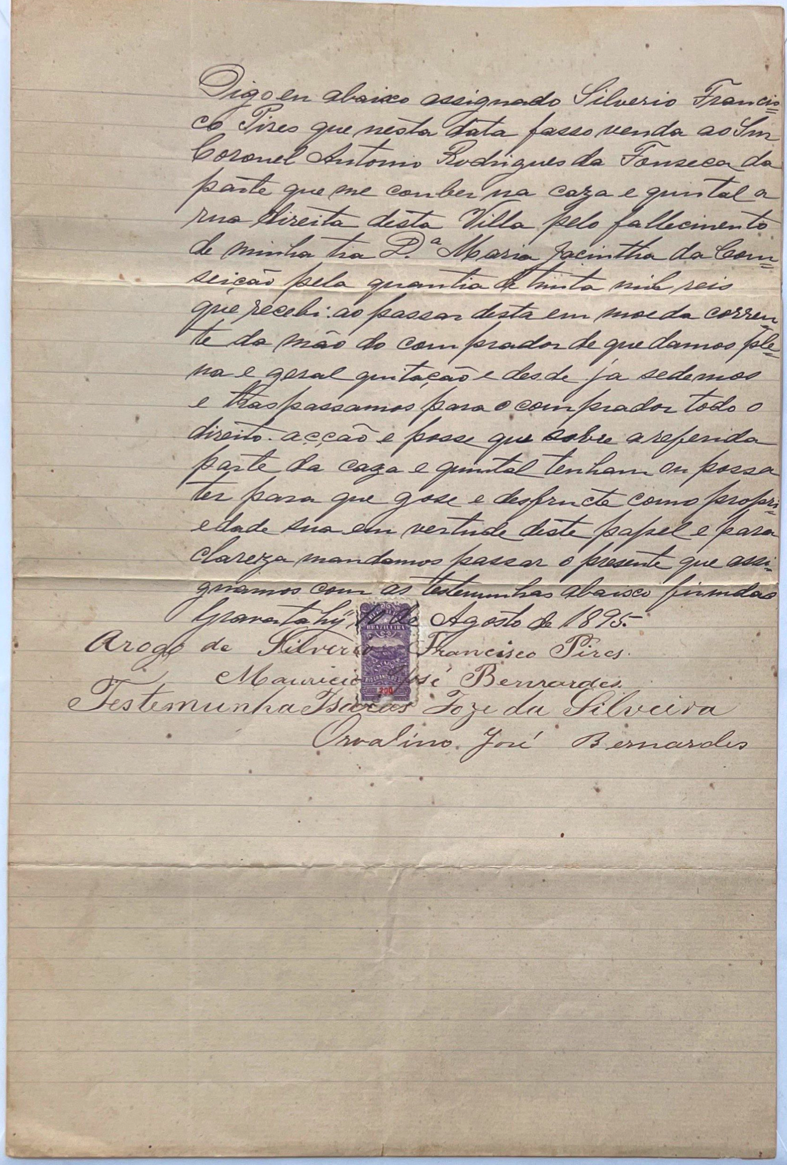 Digo eu abaixo assignado Silverio Francis=
co Pires que nesta data fasso venda ao Snr
Coronel Antonio Rodrigues da Fonseca da
parte que me couber na caza e quintal a
rua direita desta Villa pelo fallecimento
de minha tia D.ª Maria Jacintha da Con=
seição pela quantia de trinta mil reis
que recebi ao passar desta em moeda corren=
te da mão do comprador de que damos ple=
na e geral quitação e desde já sedemos
e traspassamos para o comprador todo o
direito. acção e posse que sobre a referida
parte da caza e quintal tenham ou possa
ter para que gose e desfructe como propri=
edade sua em vertude deste papel e para
clareza mandamos passar o presente que assi=
gnamos com as testemunhas abaixo firmdas
Gravatahy de Agosto de 1895.
Arogo de Silverio Francisco Pires.
Mauricio José Bernardes.
Testemunha Isaias Joze da Silveira
Orvalino José Bernardes
BRAZILEIRA